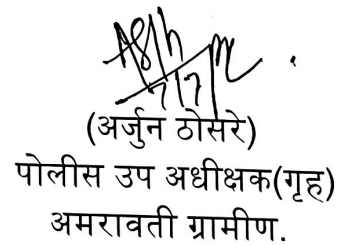 (अर्जुन ठोसरे)
पोलीस उप अधीक्षक(गृह)
अमरावती ग्रामीण.